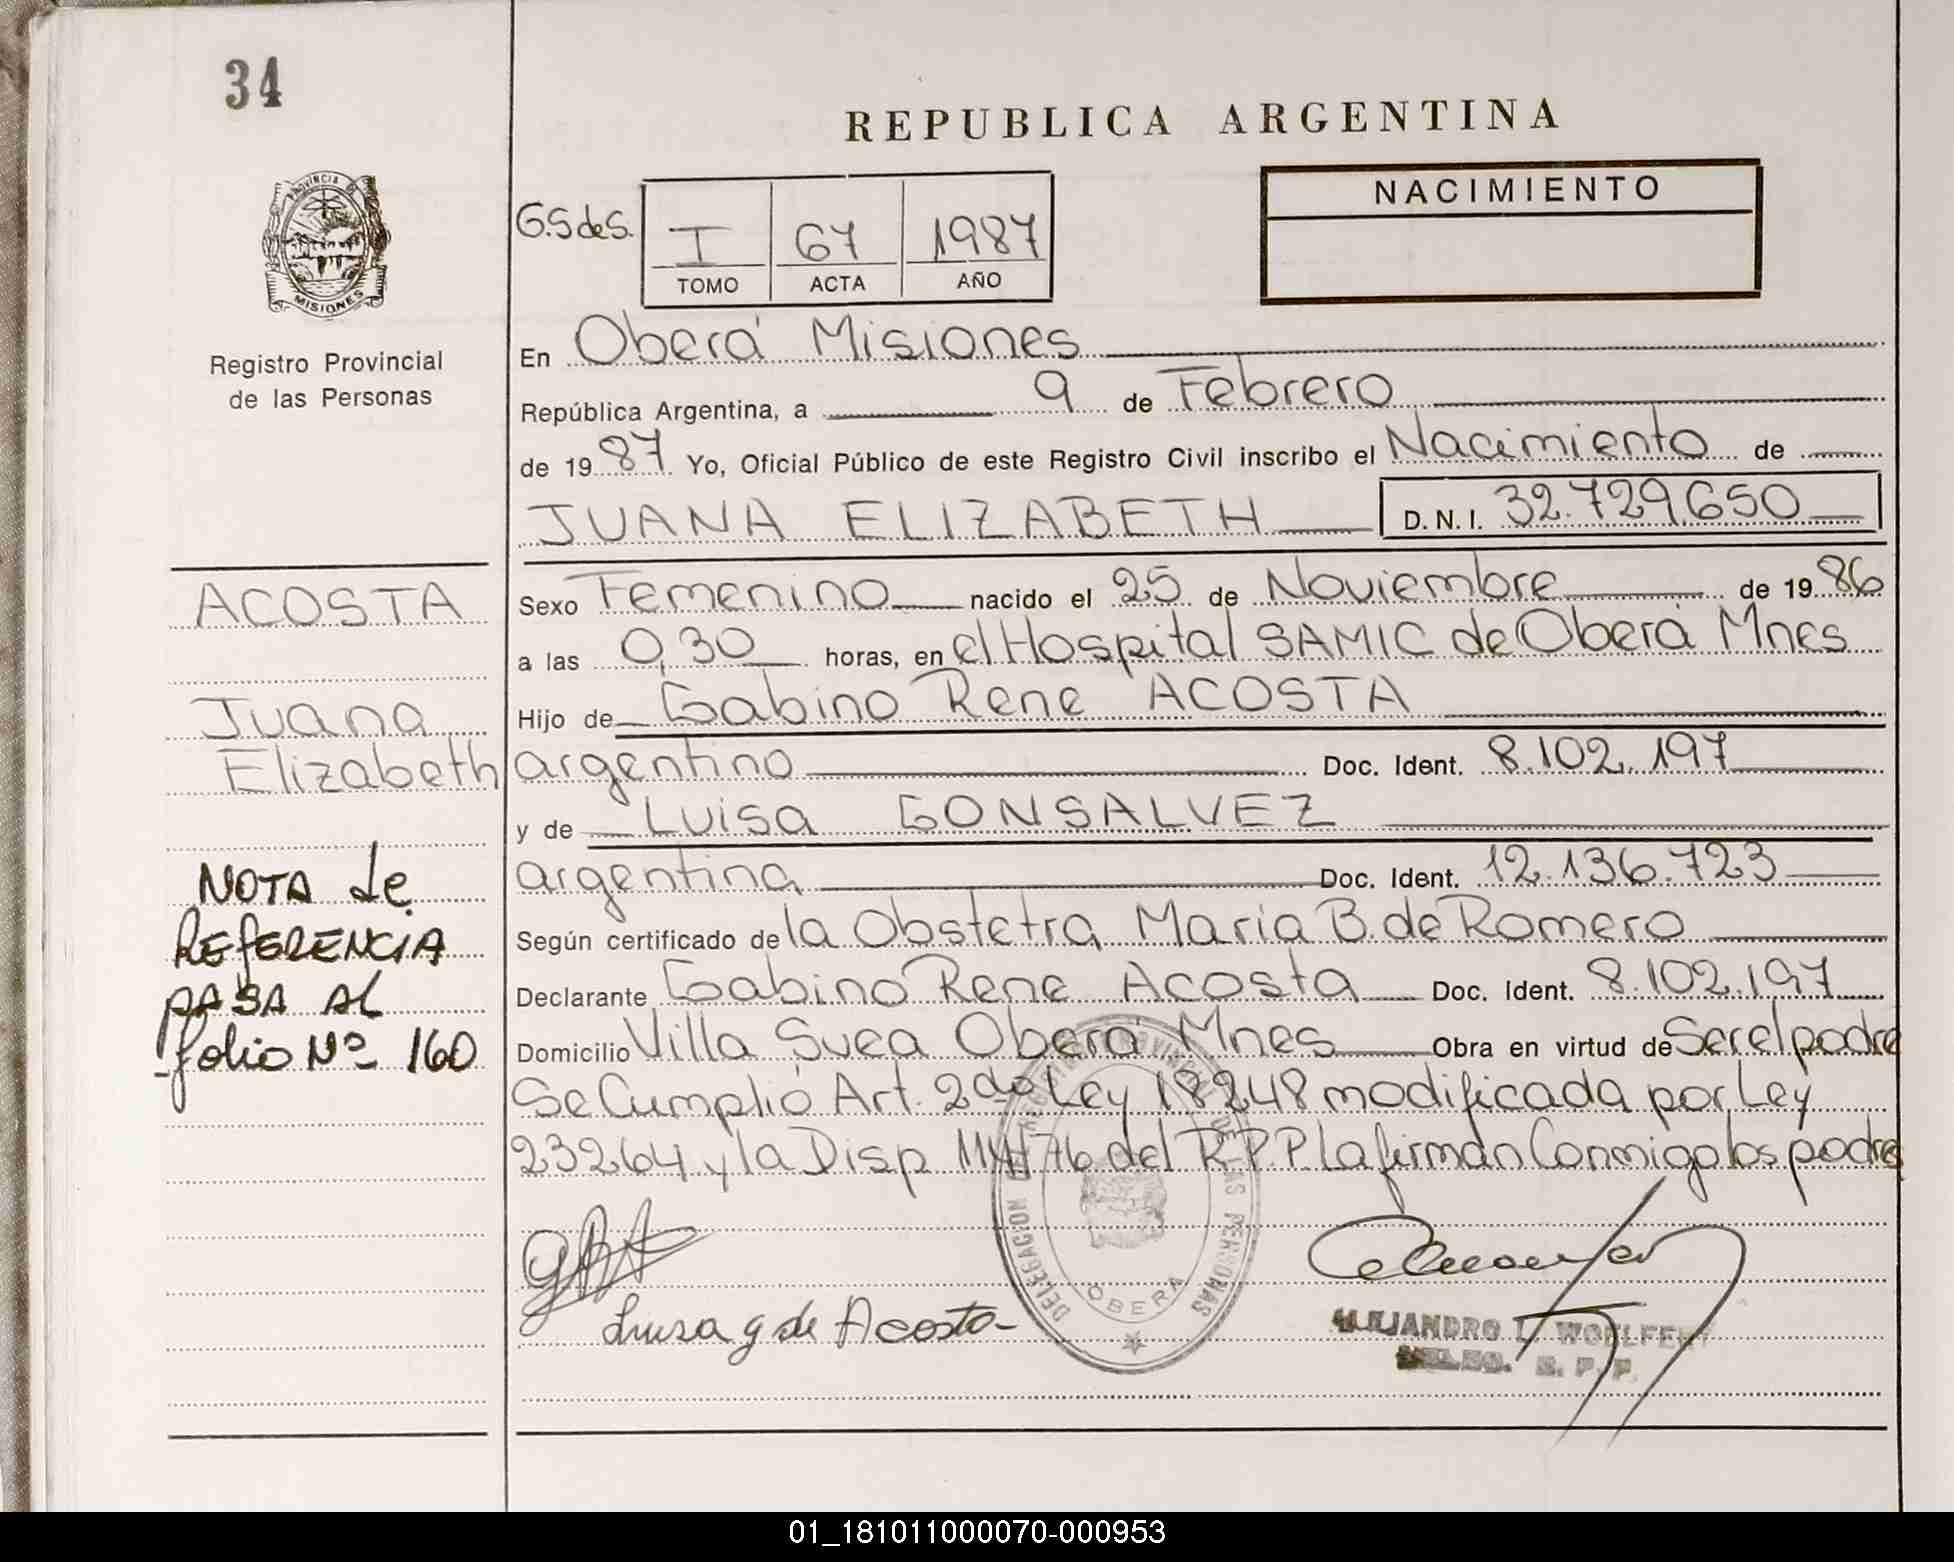 34
REPUBLICA ARGENTINA
PROVINCIA DE
MISIONES
Registro Provincial
de las Personas
NACIMIENTO
G.S de S. I 67 1987
TOMO ACTA AÑO
En Oberá Misiones
República Argentina, a 9 de Febrero
de 1987 Yo, Oficial Público de este Registro Civil inscribo el Nacimiento de
JUANA ELIZABETH D.N.I. 32.729.650
Sexo Femenino nacido el 25 de Noviembre de 1986
a las 0,30 horas, en el Hospital SAMIC de Oberá Mnes
Hijo de Gabino Rene ACOSTA
argentino Doc. Ident. 8.102.197
y de Luisa GONSALVEZ
argentina Doc. Ident. 12.136.723
Según certificado de la Obstetra Maria B. de Romero
Declarante Gabino Rene Acosta Doc. Ident. 8.102.197
Domicilio Villa Svea Oberá Mnes Obra en virtud de Ser el padre
Se Cumplió Art. 2do Ley 18248 modificada por Ley
23264 y la Disp 114/76 del R.P.P La firman Conmigo los padres
Luisa G de Acosta
DELEGACION DEL REGISTRO PROVINCIAL DE LAS PERSONAS
OBERA
ALEJANDRO L. WOELFERT
R. P. P.
ACOSTA
Juana
Elizabeth
NOTA de
REFERENCIA
PASA AL
folio Nº 160
01_181011000070-000953